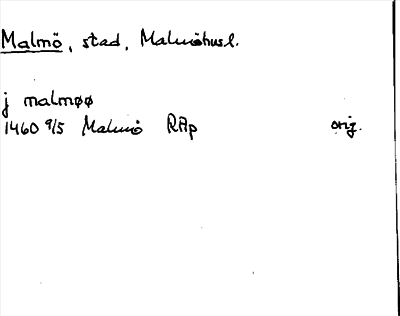 Malmö, stad, Malmöhusl.
j malmøø
1460 9/5 Malmö RAp orig.